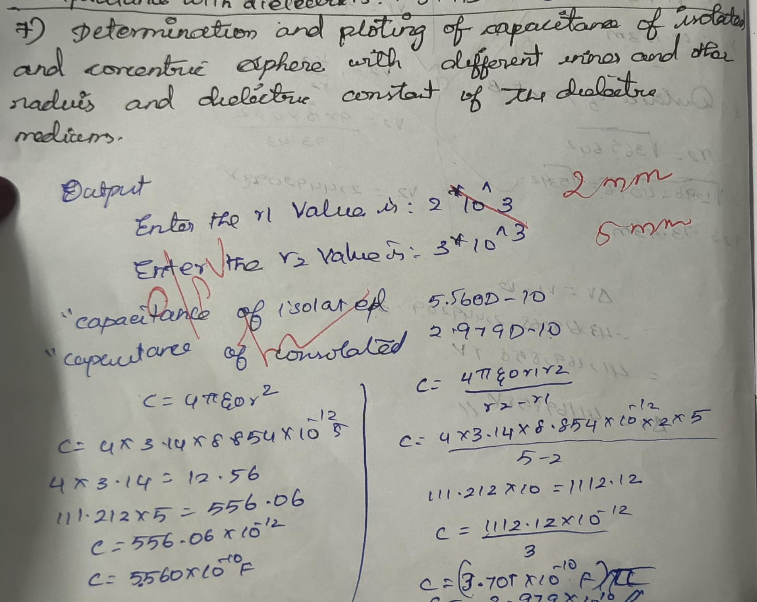 7) Determination and ploting of capacitance of isolated
and concentric sphere with different inner and other
raduis and dielectric constant of the dielectric
medicens.
Output
Enter the r1 value is: 2*10^3 2 mm
Enter the r2 value is: 3*10^3 5 mm
"capacitance of isolated 5.560D-10
"capacitance of consolated 2.979D-10
C = 4πεor²
C = 4×3.14×8.854×10⁻¹² 5
4×3.14 = 12.56
111.212×5 = 556.06
C = 556.06×10⁻¹²
C = 5.560×10⁻¹⁰F
C = 4πεor1r2
r2-r1
C = 4×3.14×8.854×10⁻¹²×2×5
5-2
111.212×10 = 1112.12
C = 1112.12×10⁻¹²
3
C = (3.701×10⁻¹⁰ F)